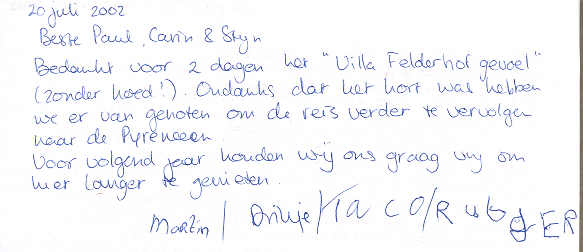 20 juli 2002
Beste Paul, Carin & Styn
Bedankt voor 2 dagen het "Villa Felderhof gevoel"
(zonder hoed!). Ondanks dat het kort was hebben
we er van genoten om de reis verder te vervolgen
naar de Pyreneeën.
Voor volgend jaar houden wij ons graag vrij om
hier langer te genieten.
Martin / / TACO / RutgER